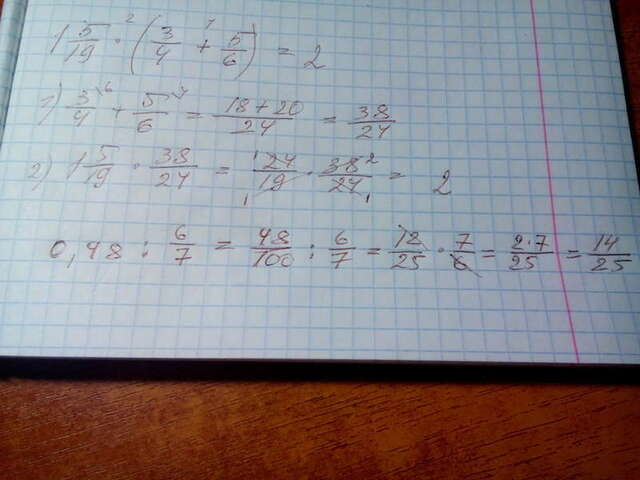 1 5/19 · (3/4 + 5/6) = 2
1) 3/4 + 5/6 = 18+20/24 = 38/24
2) 1 5/19 · 38/24 = 24/19 · 38/24 = 2
0,48 : 6/7 = 48/100 : 6/7 = 12/25 · 7/6 = 2·7/25 = 14/25